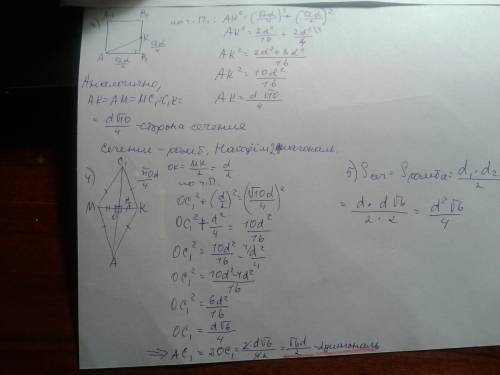 3) A₁ B₁
K
A B
√2d/2
√2d/4
по т. П.: AK² = (√2d/4)² + (√2d/2)²
AK² = 2d²/16 + 2d²/4
AK² = (2d² + 8d²)/16
AK² = 10d²/16
AK = d√10/4
Аналогично,
AK = AM = MC₁ = C₁K =
= d√10/4 - сторона сечения
Сечение - ромб. Найдём диагональ.
4) C₁
√10d/4
M O K
A
OK = MK/2 = d/2
по т. П.
OC₁² + (d/2)² = (√10d/4)²
OC₁² + d²/4 = 10d²/16
OC₁² = 10d²/16 - ⁴⁾d²/4
OC₁² = (10d² - 4d²)/16
OC₁² = 6d²/16
OC₁ = d√6/4
=> AC₁ = 2OC₁ = 2d√6/4 = √6d/2 - диагональ
5) Sсеч = Sромба = d₁·d₂/2
= d·d√6/2·2 = d²√6/4